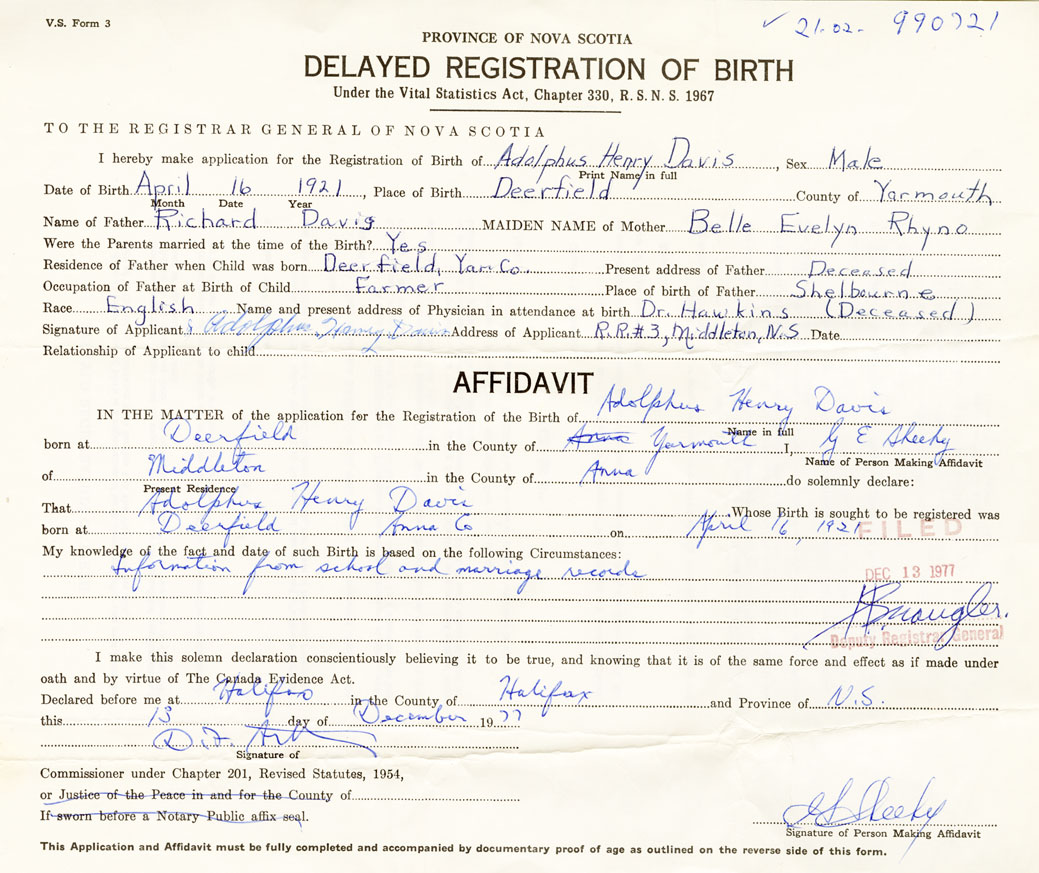 V.S. Form 3
✓ 21-02- 990721
PROVINCE OF NOVA SCOTIA
DELAYED REGISTRATION OF BIRTH
Under the Vital Statistics Act, Chapter 330, R. S. N. S. 1967
TO THE REGISTRAR GENERAL OF NOVA SCOTIA
I hereby make application for the Registration of Birth of Adolphus Henry Davis, Sex Male
Print Name in full
Date of Birth April 16 1921, Place of Birth Deerfield County of Yarmouth
Month Date Year
Name of Father Richard Davis MAIDEN NAME of Mother Belle Evelyn Rhyno
Were the Parents married at the time of the Birth? Yes
Residence of Father when Child was born Deerfield, Yar. Co. Present address of Father Deceased
Occupation of Father at Birth of Child Farmer Place of birth of Father Shelbourne
Race English Name and present address of Physician in attendance at birth Dr. Hawkins (Deceased)
Signature of Applicant Adolphus Henry Davis Address of Applicant R.R.#3, Middleton, N.S Date
Relationship of Applicant to child
AFFIDAVIT
IN THE MATTER of the application for the Registration of the Birth of Adolphus Henry Davis
Name in full
born at Deerfield in the County of Anna Yarmouth I, G E Sheehy
Name of Person Making Affidavit
of Middleton in the County of Anna do solemnly declare:
Present Residence
That Adolphus Henry Davis Whose Birth is sought to be registered was
born at Deerfield Anna Co on April 16, 1921
FILED
My knowledge of the fact and date of such Birth is based on the following Circumstances:
Information from school and marriage records
DEC 13 1977
Deputy Registrar General
I make this solemn declaration conscientiously believing it to be true, and knowing that it is of the same force and effect as if made under
oath and by virtue of The Canada Evidence Act.
Declared before me at Halifax in the County of Halifax and Province of N.S.
this 13 day of December 1977
D.F.
Signature of
Commissioner under Chapter 201, Revised Statutes, 1954,
or Justice of the Peace in and for the County of
If sworn before a Notary Public affix seal.
G E Sheehy
Signature of Person Making Affidavit
This Application and Affidavit must be fully completed and accompanied by documentary proof of age as outlined on the reverse side of this form.